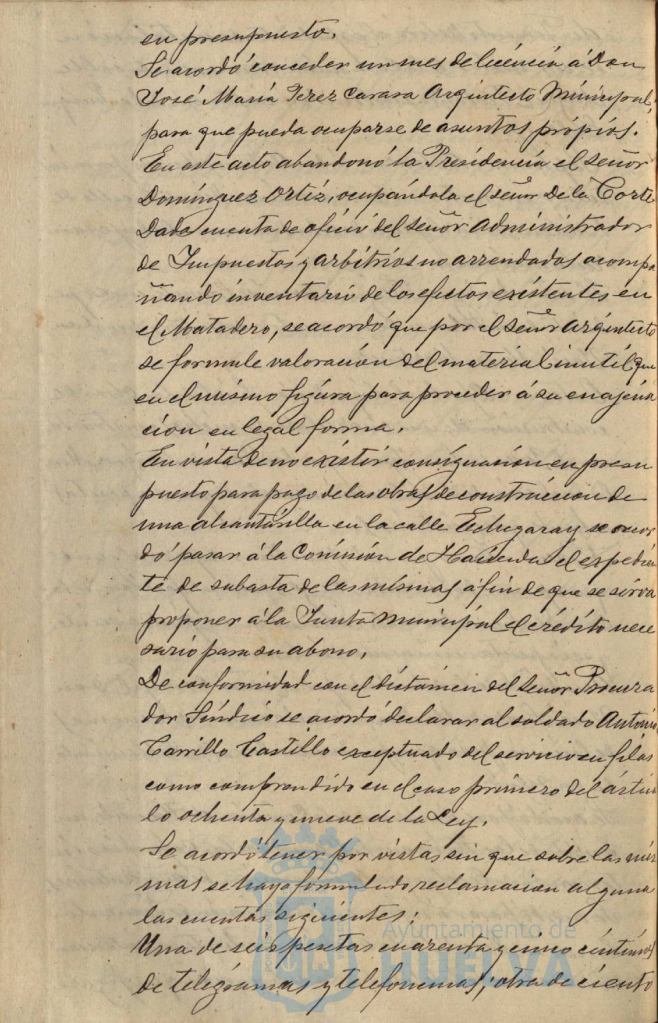 en presupuesto.
Se acordó conceder un mes de licencia á Don
José María Perez Carasa Arquitecto Municipal,
para que pueda ocuparse de asuntos própios.
En este acto abandonó la Presidencia el Señor
Domínguez Ortíz, ocupándola el señor De la Corte
Dada cuenta de oficio del Señor Administrador
de Impuestos y arbitrios no arrendados acompa
ñando inventario de los efectos existentes en
el Matadero, se acordó que por el Señor Arquitecto
se formule valoración del material inutil que
en el mismo figura para proceder á su enajena
cion en legal forma.
En vista de no existir consignación en presu
puesto para pago de las obras de construccion de
una alcantarilla en la calle Echegaray se acor
dó pasar á la Comisión de Hacienda el expedien
te de subasta de las mismas á fin de que se sirva
proponer á la Junta Municipal el crédito nece
sario para su abono.
De conformidad con el dictámen del Señor Procura
dor Síndico se acordó declarar al soldado Antonio
Carrillo Castillo exceptuado del servicio en filas
como comprendido en el caso primero del artícu
lo ochenta y nueve de la Ley.
Se acordó tener por vistas sin que sobre las mis
mas se haya formulado reclamacion alguna
las cuentas siguientes:
Una de seis pesetas cuarenta y cinco céntimos
de telégramas y telefonemas; otra de ciento
Ayuntamiento de
HUELVA